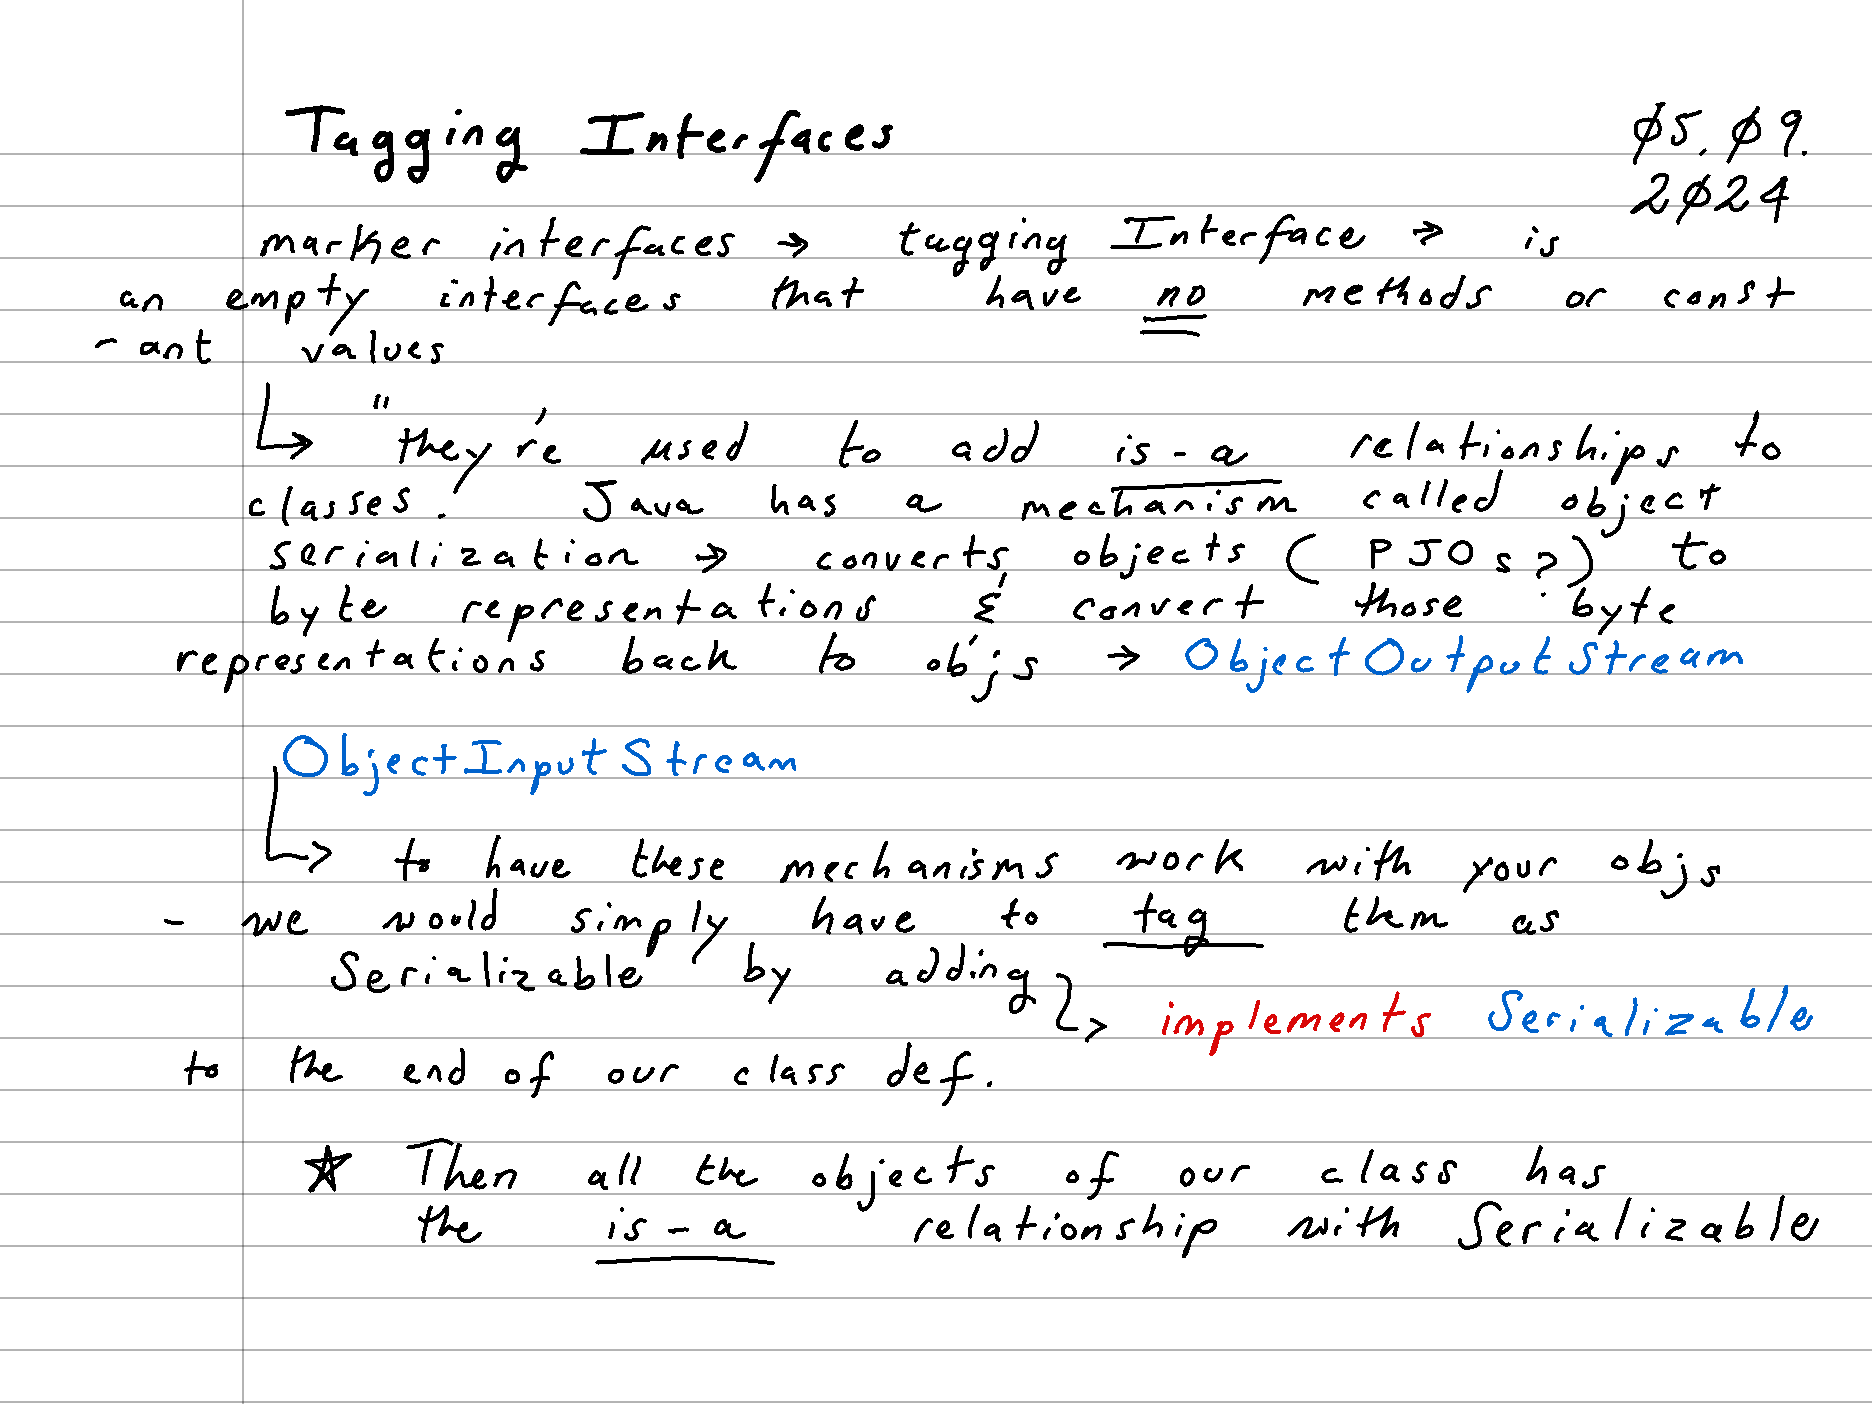 Tagging Interfaces
Ø5. Ø9.
2Ø24
marker interfaces → tagging Interface → is
an empty interfaces that have no methods or const
- ant values
↳ "they're used to add is-a relationships to
classes. Java has a mechanism called object
serialization → converts objects (PJOs?) to
byte representations & convert those byte
representations back to objs → ObjectOutputStream
ObjectInputStream
↳ to have these mechanisms work with your objs
- we would simply have to tag them as
Serializable by adding
↳ implements Serializable
to the end of our class def.
☆ Then all the objects of our class has
the is-a relationship with Serializable